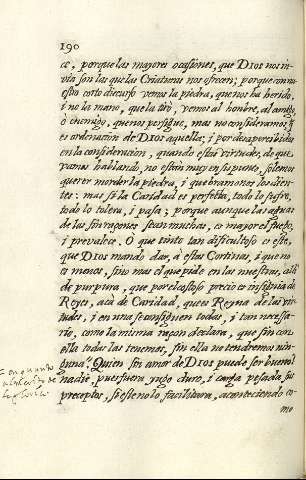 190
ce, porque las mayores ocasiones, que DIOS nos in-
via son las que las Criaturas nos ofrecen; porque con nu-
estro corto discurso vemos la piedra, que nos ha herido,
i no la mano, que la tirò, vemos al honbre, al amigo,
ò enemigo, que nos persigue, mas no consideramos q̃
es ordenacion de DIOS aquella; i por desapercibidos
en la consideracion, quando estas virtudes, de que
vamos hablando, no estan mui en su punto, solemos
querer morder la piedra, i quebramonos los dien-
tes: mas si la Caridad es perfetta, todo lo sufre,
todo lo tolera, i passa; porque aunque las aguas
de las sinrazones sean muchas, es mayor el fuego,
i prevalece. O que tinto tan dificultoso es este,
que DIOS mando dar, à estas Cortinas, i que no
es menos, sino mas el que pide en las nuestras, cali
de purpura, que por el costoso precio es insignia de
Reyes, acà de Caridad, que es Reyna de las vir-
tudes, i en una se consiguen todas, i tan necessa-
ria, como la misma razon declara, que sin con
ella todas las tenemos, sin ella no tendremos nin-
guna. Quien sin amor de DIOS puede ser bueno?
nadie, pues fuera yugo duro, i carga pesada sus
preceptos, si este no lo facilitara, aconteciendo co-
mo
en quanto